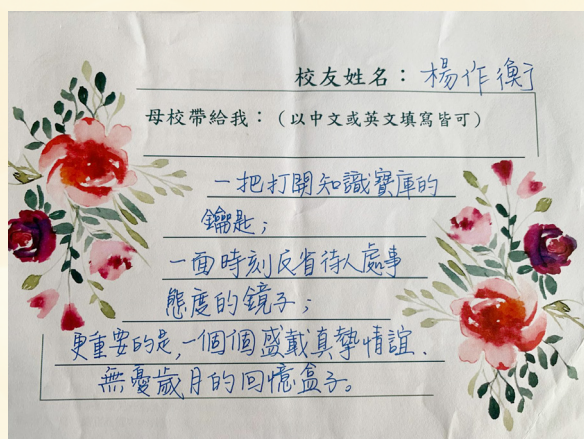 校友姓名：楊作衡
母校帶給我：（以中文或英文填寫皆可）
一把打開知識寶庫的
鑰匙；
一面時刻反省待人處事
態度的鏡子；
更重要的是，一個個盛載真摯情誼、
無憂歲月的回憶盒子。